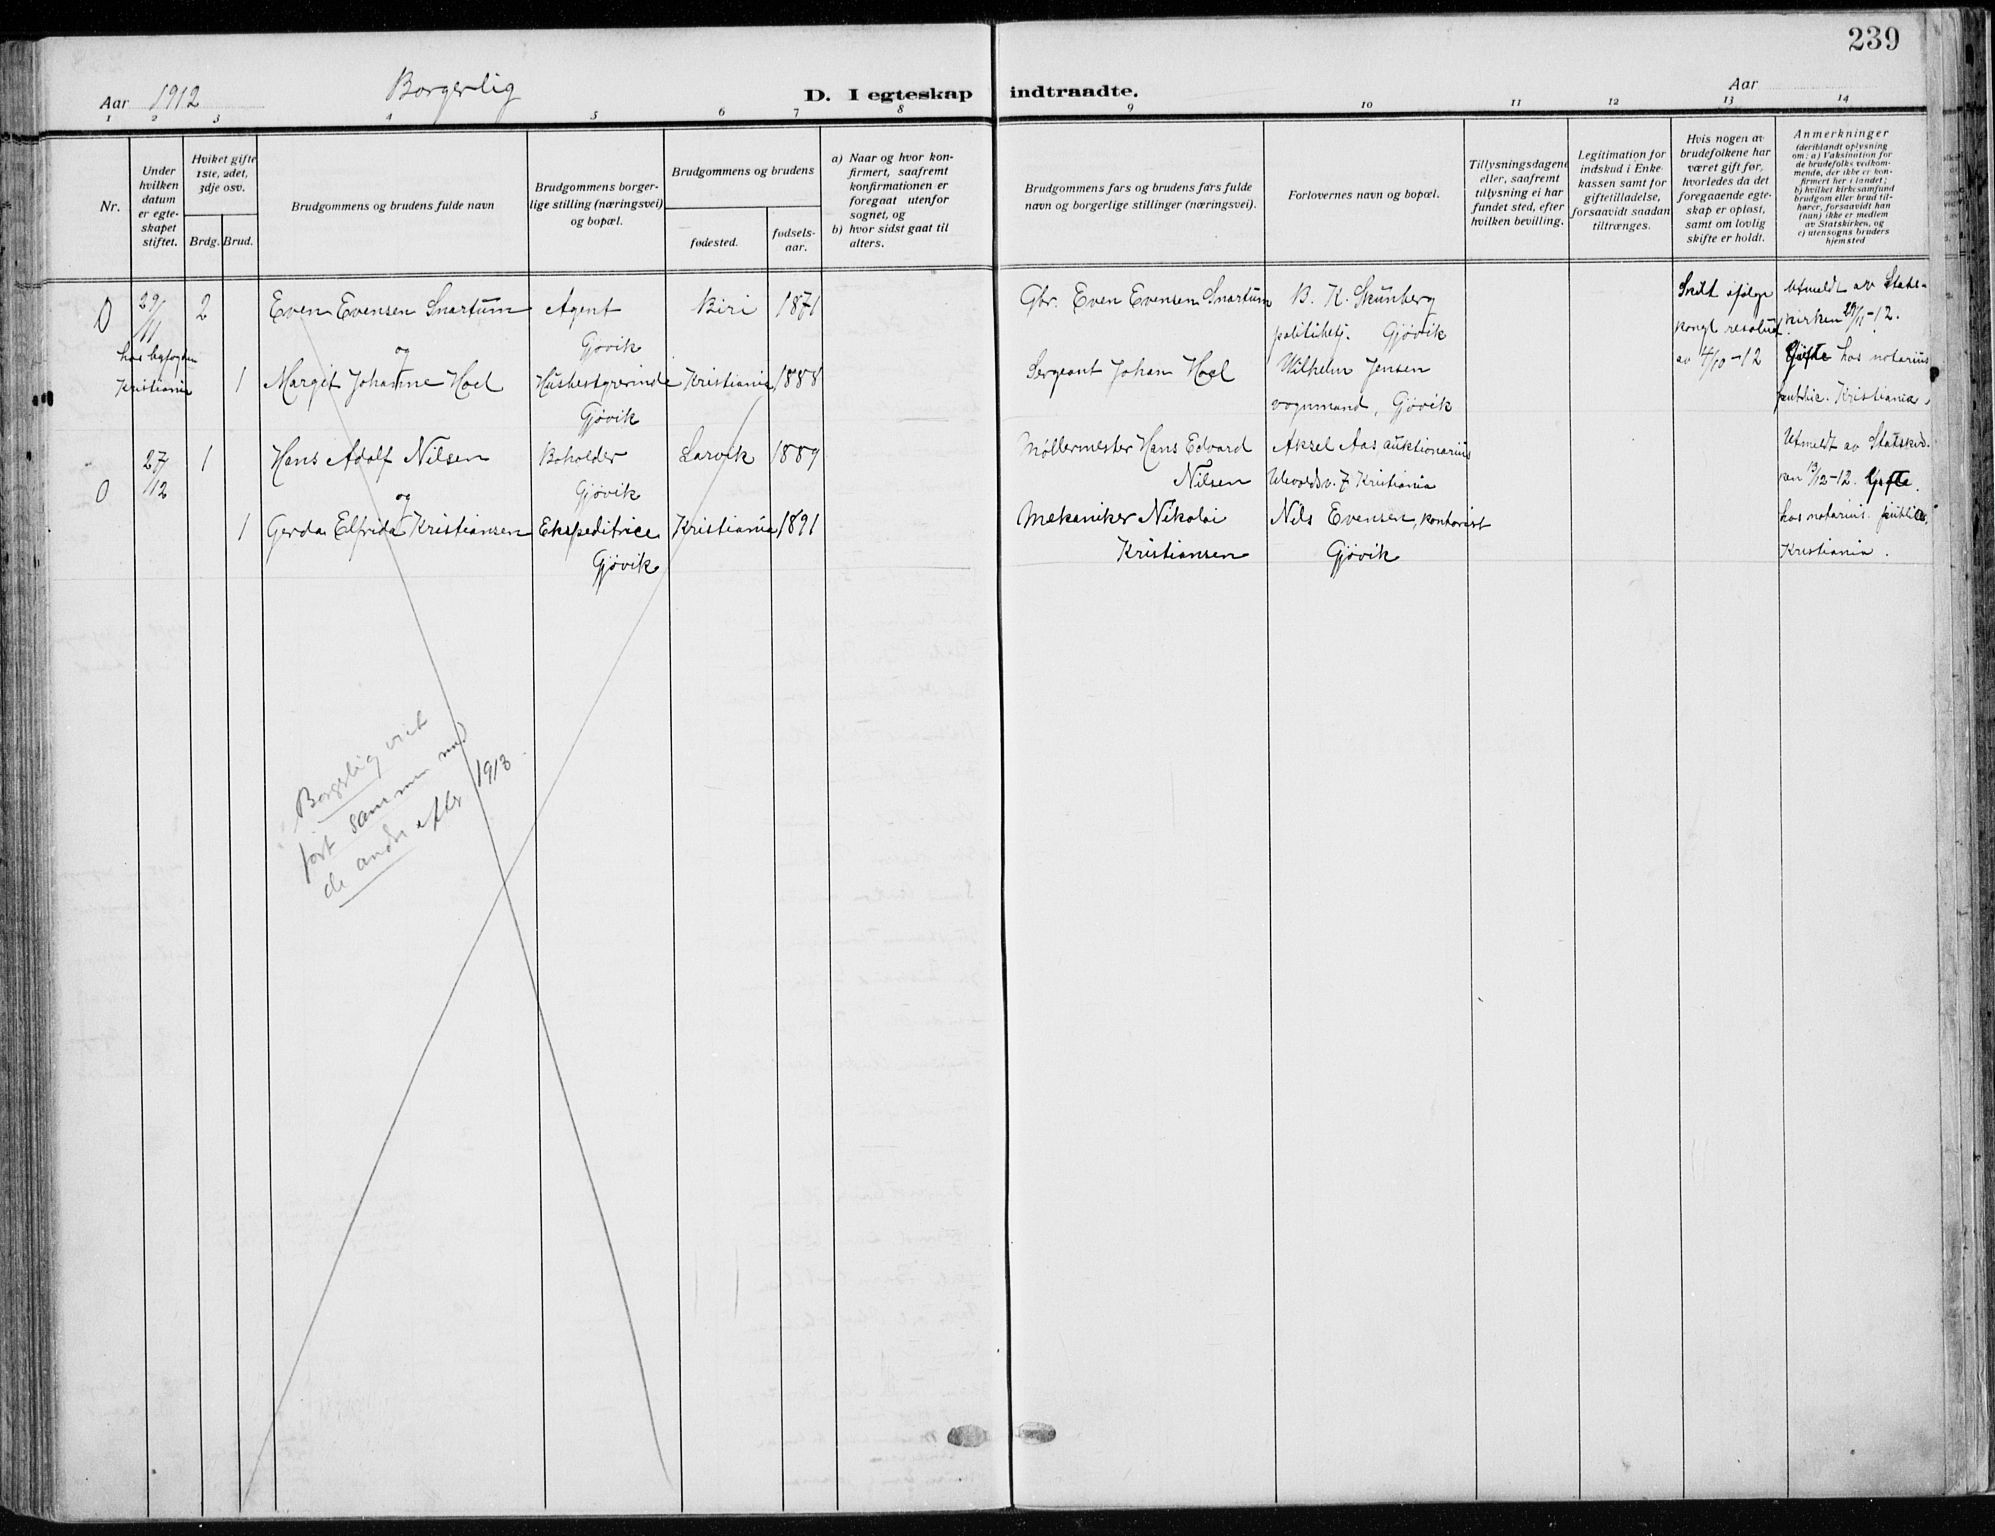 239
Aar 1912 Borgerlig D. I egteskap indtraadte. Aar
1 2 3 4 5 6 7 8 9 10 11 12 13 14
Nr.
Under
hvilken
datum
er egte-
skapet
stiftet.
Hviket gifte
1ste, 2det,
3dje osv.
Brdg. Brud.
Brudgommens og brudens fulde navn
Brudgommens borger-
lige stilling (næringsvei)
og bopæl.
Brudgommens og brudens
fødested.
fødsels-
aar.
a) Naar og hvor kon-
firmert, saafremt
konfirmationen er
foregaat utenfor
sognet, og
b) hvor sidst gaat til
alters.
Brudgommens fars og brudens fars fulde
navn og borgerlige stillinger (næringsvei).
Forlovernes navn og bopæl.
Tillysningsdagene
eller, saafremt
tillysning ei har
fundet sted, efter
hvilken bevilling.
Legitimation for
indskud i Enke-
kassen samt for
giftetilladelse,
forsaavidt saadan
tiltrænges.
Hvis nogen av
brudefolkene har
været gift før,
hvorledes da det
foregaaende egte-
skap er opløst,
samt om lovlig
skifte er holdt.
Anmerkninger
(deriblandt oplysning
om: a) Vaksination for
de brudefolks vedkom-
mende, der ikke er kon-
firmert her i landet;
b) hvilket kirkesamfund
brudgom eller brud til-
hører, forsaavidt han
(hun) ikke er medlem
av Statskirken, og
c) utensogns bruders
hjemsted
0 29/11 2 Even Evensen Snartum Agent Biri 1871
Gjøvik
hos byfogden
Kristiania
og
1 Margit Johanne Hoel Husbestyrerinde Kristiania 1888
Gjøvik
Gbr. Even Evensen Snartum
Sergeant Johan Hoel
B. K. Skunberg
politibetj. Gjøvik
Wilhelm Jensen
vognmand, Gjøvik
Skilt ifølge
kongl resolut.
av 4/10-12
Utmeldt av Stats-
kirken 29/11-12.
Gifte hos notarius
public. Kristiania.
0 27/12 1 Hans Adolf Nilsen Boholder Larvik 1889
Gjøvik
og
1 Gerda Elfrida Kristiansen Ekspeditrice Kristiania 1891
Gjøvik
Møllermester Hans Edvard
Nilsen
Mekaniker Nikolai
Kristiansen
Aksel Aas auktionarius
Ulevoldsv. 7 Kristiania
Nils Evensen, kontorist
Gjøvik
Utmeldt av Statskir-
ken 13/12-12. Gifte
hos notarius public,
Kristiania.
Borgerlig viet
ført sammen med
de andre efter 1913.